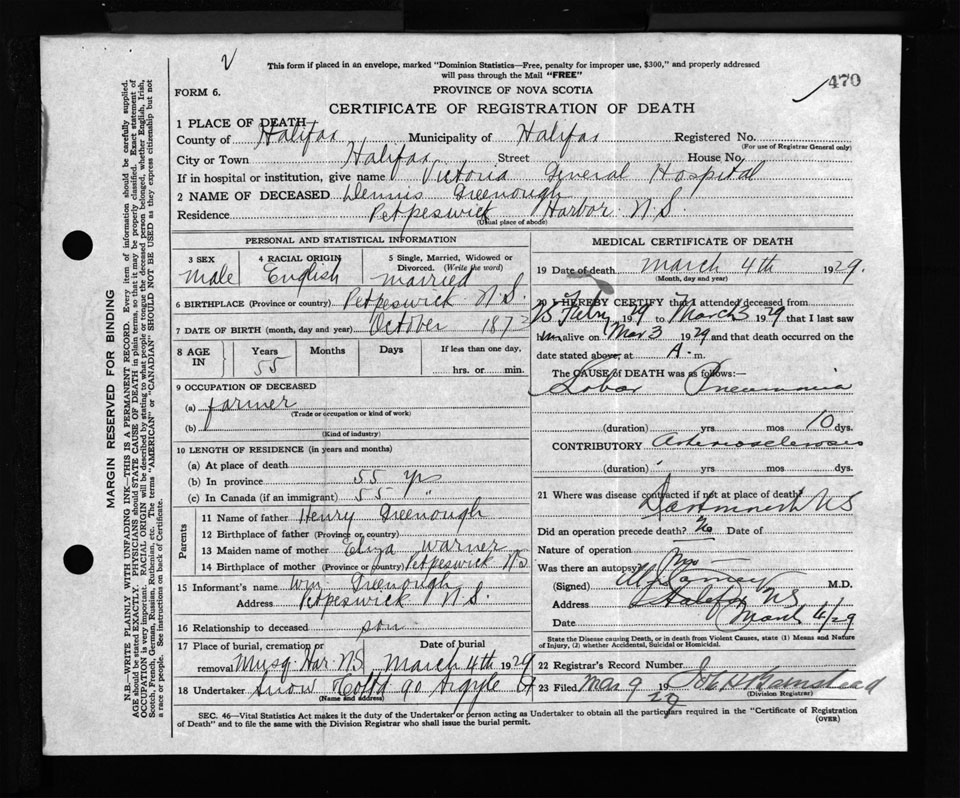 This form if placed in an envelope, marked "Dominion Statistics—Free, penalty for improper use, $300," and properly addressed
will pass through the Mail "FREE"
470
FORM 6.
PROVINCE OF NOVA SCOTIA
CERTIFICATE OF REGISTRATION OF DEATH
1 PLACE OF DEATH
County of Halifax Municipality of Halifax Registered No.
(For use of Registrar General only)
City or Town Halifax Street House No.
If in hospital or institution, give name Victoria General Hospital
2 NAME OF DECEASED Dennis Greenough
Residence Petpeswick Harbor N.S.
(Usual place of abode)
PERSONAL AND STATISTICAL INFORMATION
3 SEX 4 RACIAL ORIGIN 5 Single, Married, Widowed or
Divorced. (Write the word)
Male English married
6 BIRTHPLACE (Province or country) Petpeswick N.S.
7 DATE OF BIRTH (month, day and year) October 1873
8 AGE IN Years Months Days If less than one day,
55 hrs. or min.
9 OCCUPATION OF DECEASED
(a) farmer
(Trade or occupation or kind of work)
(b)
(Kind of industry)
10 LENGTH OF RESIDENCE (in years and months)
(a) At place of death
(b) In province 55 yrs
(c) In Canada (if an immigrant) 55 "
Parents
11 Name of father Henry Greenough
12 Birthplace of father (Province or country)
13 Maiden name of mother Eliza Warner
14 Birthplace of mother (Province or country) Petpeswick NS
15 Informant's name Wm Greenough
Address Petpeswick N.S.
16 Relationship to deceased son
17 Place of burial, cremation or Date of burial
removal Musq. Har. NS March 4th 1929
18 Undertaker Snow 90 Argyle St
(Name and address)
MEDICAL CERTIFICATE OF DEATH
19 Date of death March 4th 1929.
(Month, day and year)
20 I HEREBY CERTIFY that I attended deceased from
1929 to March 3 1929 that I last saw
him alive on Mar 3 1929 and that death occurred on
date stated above, at A. m.
The CAUSE of DEATH was as follows:—
Lobar Pneumonia
(duration) yrs mos 10 dys.
CONTRIBUTORY Arteriosclerosis
(duration) yrs. mos. dys.
21 Where was disease contracted if not at place of death?
Dartmouth NS
Did an operation precede death? No Date of
Nature of operation
Was there an autopsy?
(Signed) M.D.
Address Halifax NS
Date March 4/29
State the Disease causing Death, or in death from Violent Causes, state (1) Means and Nature
of Injury, (2) whether Accidental, Suicidal or Homicidal.
22 Registrar's Record Number
23 Filed Mar 9 1929
(Division Registrar)
SEC. 46—Vital Statistics Act makes it the duty of the Undertaker or person acting as Undertaker to obtain all the particulars required in the "Certificate of Registration
of Death" and to file the same with the Division Registrar who shall issue the burial permit.
(OVER)
MARGIN RESERVED FOR BINDING
N.B.—WRITE PLAINLY WITH UNFADING INK—THIS IS A PERMANENT RECORD. Every item of information should be carefully supplied.
AGE should be stated EXACTLY. PHYSICIANS should STATE CAUSE OF DEATH in plain terms, so that it may be properly classified. Exact statement of
OCCUPATION is very important. RACIAL ORIGIN will be described by stating to what people or tongue the deceased person belonged, whether English, Irish,
Scotch, French, German, Russian, Ruthenian, etc. The terms "AMERICAN" or "CANADIAN" SHOULD NOT BE USED as they express citizenship but not
a race or people. See instructions on back of Certificate.